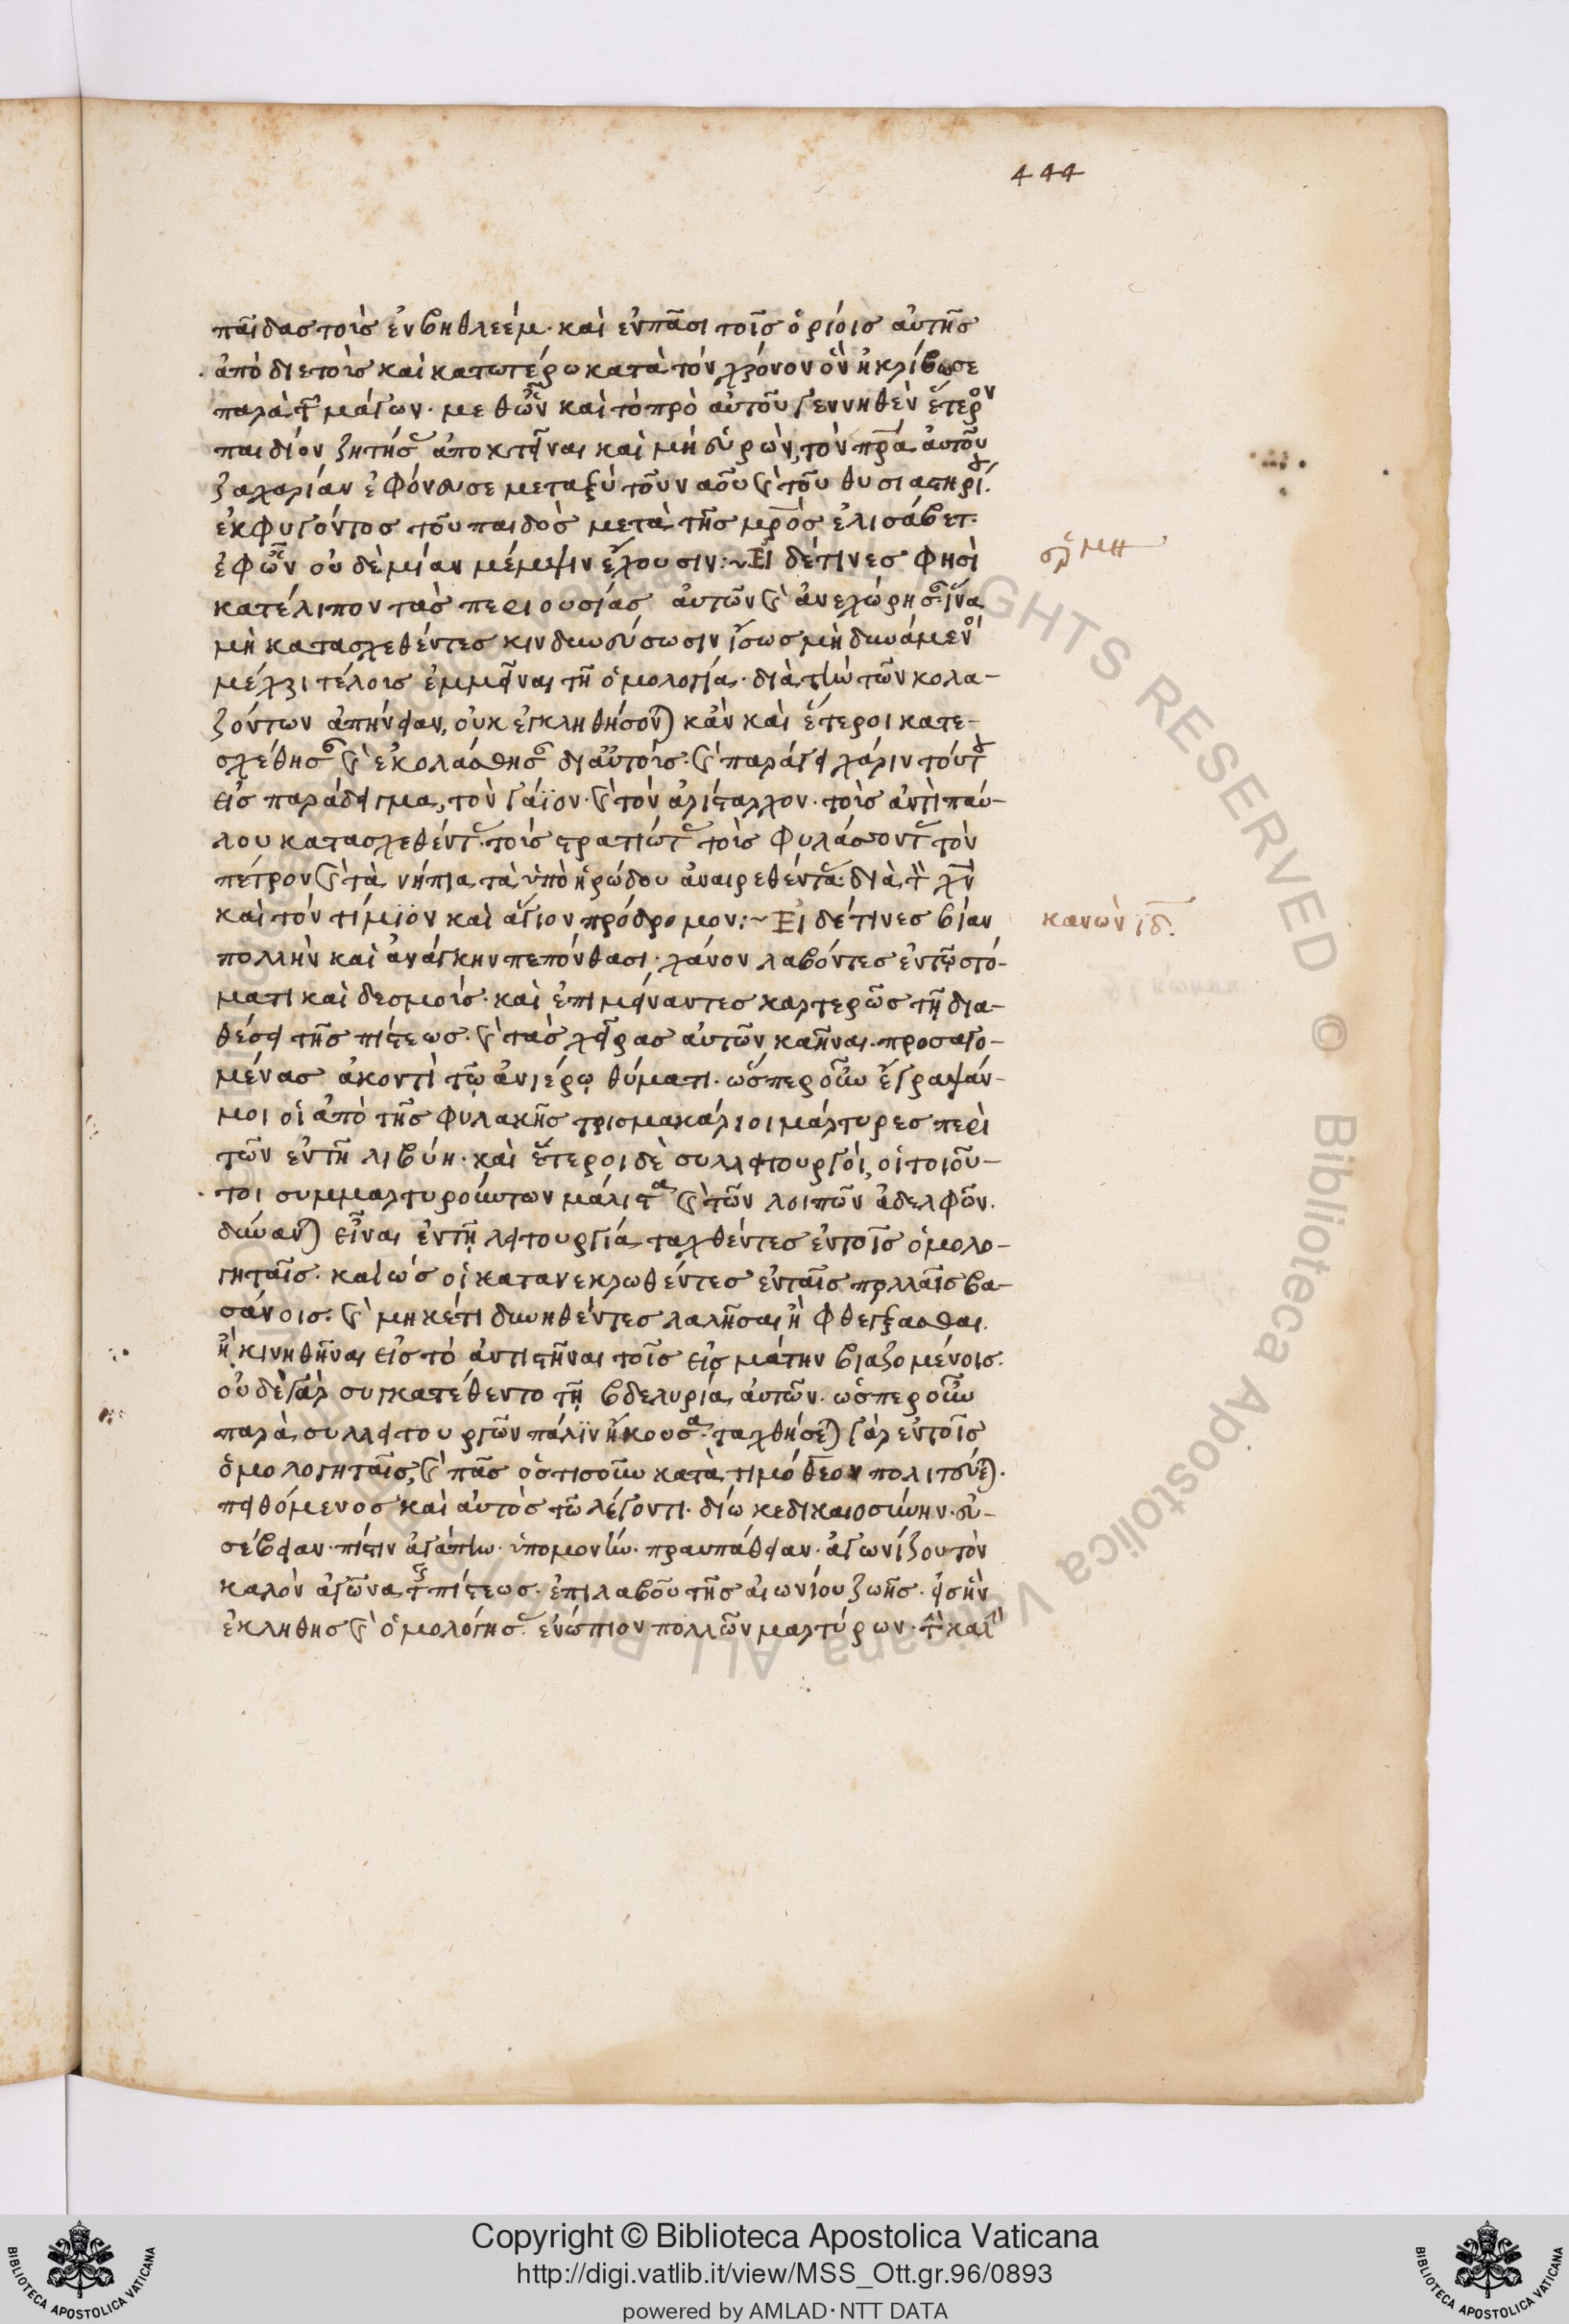 444
παῖδας τοὺς ἐν βηθλεέμ· καὶ ἐν πᾶσι τοῖς ὁρίοις αὐτῆς
ἀπὸ διετοῦς καὶ κατωτέρω κατὰ τὸν χρόνον ὃν ἠκρίβωσε
παρὰ τῶν μάγων· μεθ ὧν καὶ τὸ πρὸ αὐτοῦ γεννηθὲν ἕτερον
παιδίον ζητήσας ἀποκτεῖναι καὶ μὴ εὑρὼν, τὸν πρα αὐτοῦ
ζαχαρίαν ἐφόνευσε μεταξὺ τοῦ ναοῦ καὶ τοῦ θυσιαστηρίου
ἐκφυγόντος τοῦ παιδὸς μετὰ τῆς μρος ἐλισάβετ·
ἐφ ὧν οὐδὲ μίαν μέμψιν ἔχουσιν:~ Εἰ δέ τινες φησὶ
κατέλιπον τὰς περιουσίας αὐτῶν καὶ ἀνεχώρησαν ἵνα
μὴ κατασχεθέντες κινδυνεύσωσιν ἴσως μὴ δυνάμενοι
μέχρι τέλους ἐμμεῖναι τῇ ὁμολογίᾳ· διὰ τὴν τῶν κολα-
ζόντων ἀπήνειαν, οὐκ ἐγκληθήσονται κἂν καὶ ἕτεροι κατε-
σχέθησαν καὶ ἐκολάσθησαν δι αὐτούς· καὶ παράγει χάριν τούτου
εἰς παράδειγμα, τὸν γάϊον· καὶ τὸν ἀρίσταρχον· τοὺς ἀντὶ παύ-
λου κατασχεθέντας· τοὺς στρατιώτας τοὺς φυλάσσοντας τὸν
πέτρον καὶ τὰ νήπια τὰ ὑπὸ ἡρώδου ἀναιρεθέντα· διὰ τὸν χν
καὶ τὸν τίμιον καὶ ἅγιον πρόδρομον:~ Εἰ δέ τινες βίαν
κανὼν ιδ.
πολλὴν καὶ ἀνάγκην πεπόνθασι· χάνον λαβόντες ἐν τῷ στό-
ματι καὶ δεσμούς· καὶ ἐπιμείναντες καρτερῶς τῇ δια-
θέσει τῆς πίστεως· καὶ τὰς χεῖρας αὐτῶν καῆναι· προσαγο-
μένας ἄκοντὶ τῷ ἀνιέρῳ θύματι· ὥσπερ οὖν ἔγραψάν-
μοι οἱ ἀπὸ τῆς φυλακῆς τρισμακάριοι μάρτυρες περὶ
τῶν ἐν τῇ λιβύῃ· καὶ ἕτεροι δὲ συλλειτουργοὶ, οἱ τοιοῦ-
τοι συμμαρτυρούντων μάλιστα καὶ τῶν λοιπῶν ἀδελφῶν·
δύνανται εἶναι ἐν τῇ λειτουργίᾳ ταχθέντες ἐν τοῖς ὁμολο-
γηταῖς· καὶ ὡς οἱ κατανεκρωθέντες ἐν ταῖς πολλαῖς βα-
σάνοις· καὶ μηκέτι δυνηθέντες λαλῆσαι ἢ φθέγξασθαι·
ἢ κινηθῆναι εἰς τὸ ἀντιστῆναι τοῖς εἰς μάτην βιαζομένοις·
οὐδὲ γὰρ συγκατέθεντο τῇ βδελυρίᾳ αὐτῶν· ὥσπερ οὖν
παρὰ συλλειτουργῶν πάλιν ἤκουσα· ταχθήσεται γὰρ ἐν τοῖς
ὁμολογηταῖς, καὶ πᾶς ὅστις οὖν κατὰ τιμόθεον πολιτεύεται·
πειθόμενος καὶ αὐτὸς τῷ λέγοντι· δίωκε δικαιοσύνην· εὐ-
σέβειαν· πίστιν ἀγάπην· ὑπομονήν· πραυπάθειαν· ἀγωνίζου τὸν
καλὸν ἀγῶνα τῆς πίστεως· ἐπιλαβοῦ τῆς αἰωνίου ζωῆς· εἰς ἣν
ἐκλήθης καὶ ὁμολόγησας ἐνώπιον πολλῶν μαρτύρων·
Copyright © Biblioteca Apostolica Vaticana
http://digi.vatlib.it/view/MSS_Ott.gr.96/0893
powered by AMLAD·NTT DATA
BIBLIOTECA APOSTOLICA VATICANA
BIBLIOTECA APOSTOLICA VATICANA